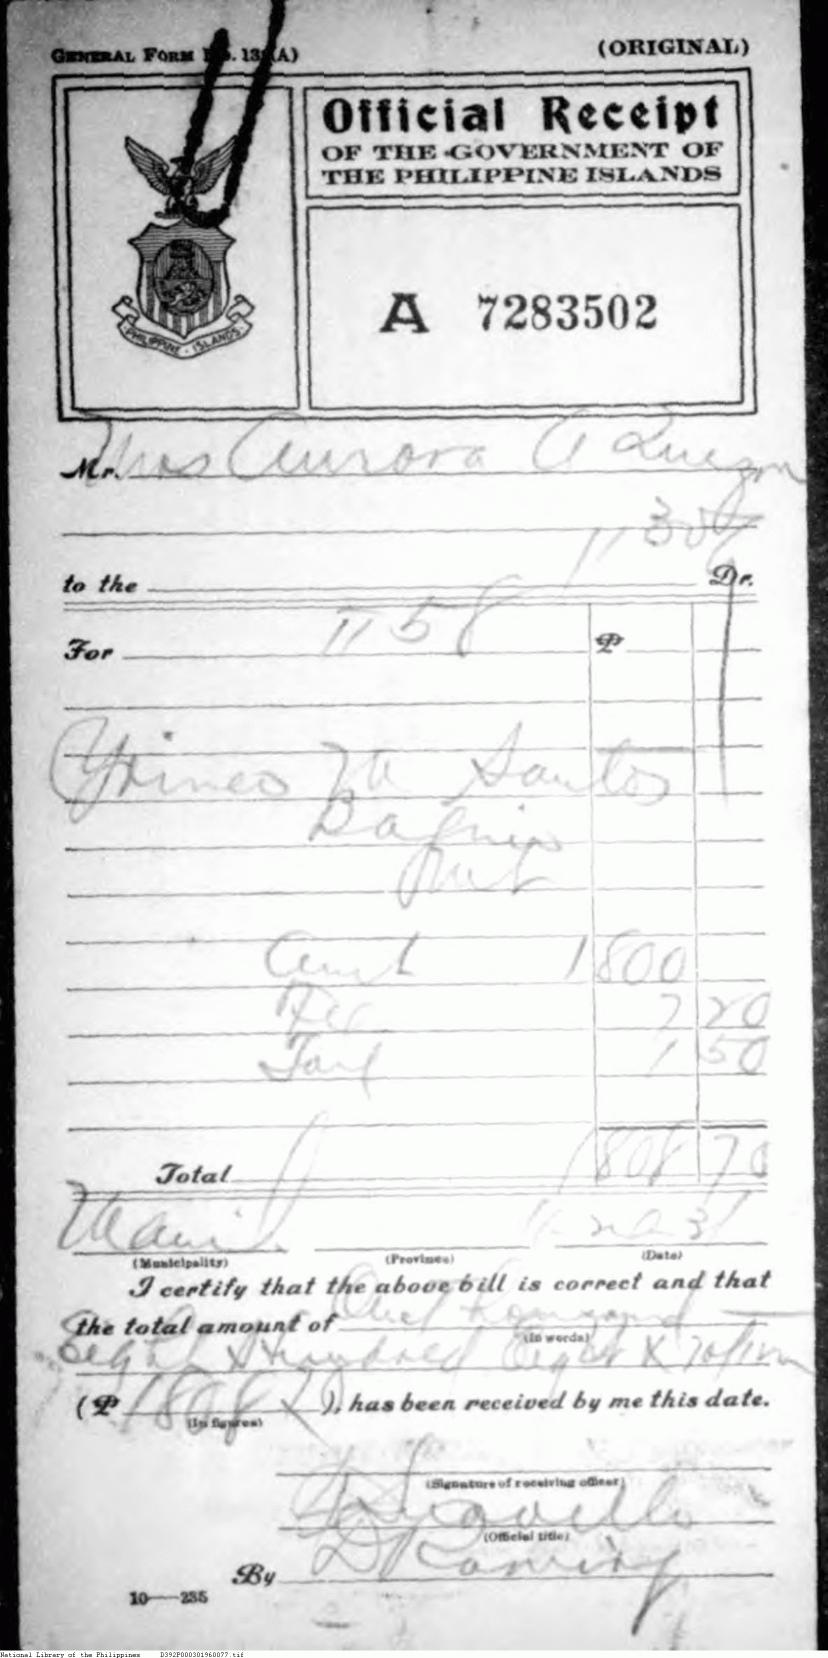 GENERAL FORM No. 13 (A)
(ORIGINAL)
Official Receipt
OF THE GOVERNMENT OF
THE PHILIPPINE ISLANDS
PHILIPPINE ISLANDS
A 7283502
Mr. Mrs Aurora A Quezon
to the Dr.
1158
For ₱
Yrineo M Santos
Baguio
Amt 1800
Fee 7 20
1 50
Total 1808 70
Manila
(Municipality) (Province) (Date)
I certify that the above bill is correct and that
the total amount of One Thousand
(In words)
Eight Hundred Eight & 70/100
(₱ 1808 ), has been received by me this date.
(In figures)
(Signature of receiving officer)
(Official title)
By
10—235
National Library of the Philippines D392P000301960077.tif